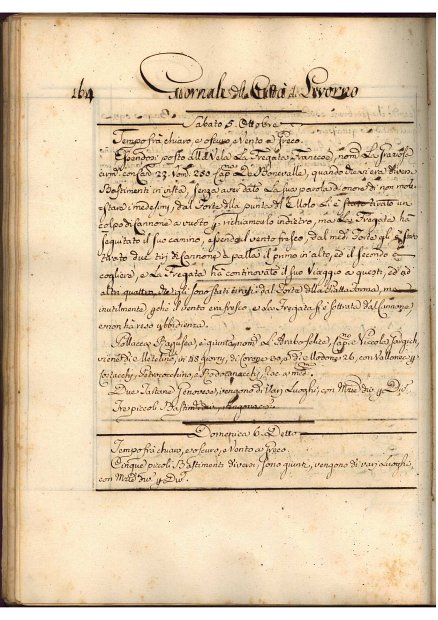 164 Giornale della Città di Livorno
Sabato 5. Ottobre
Tempo frà chiaro, e oscuro e Vento a Greco.
Essendosi posto alla Vela La Fregata Francese, nom.
con 23. 280 Cap. de Boneualle, quando che diversi
Bastimenti in vista, senza aver dato La sua parola d'onore di non mole-
stare i medesimj, dal Forte della punta del Molo Li è stato tirato un
colpo di Cannone a vuoto p. richiamarlo indietro, ma La Fregata ha
seguitato il suo camino, essendo il vento fresco, dal med. Forte gli
tirato due tiri di Cannone à palla, il primo in alto, ed il secondo è
La Fregata hà continovato il suo Viaggio a questi, ed ad
altri quattro che gli sono stati tirati dal Forte della ma
inutilmente, p. che il vento era fresco, e La Fregata si è sottrata dal Cannone,
e non ha reso ubbidienza.
Pollacca Ragusea, è giunta, nom. L'Arabo felice, Cap.
viene di Metelino, in 48 giorni, di Corone 30, e di Modone 26, con Vallonea p.
e Rodocanacchi,
Due Tartane Genovesi, vengono di Varj Luoghi, con Merc. div. p. Div.
Tre piccoli Bastim. div. vengono
Domenica 6. Detto
Tempo frà chiaro, e oscuro, e Vento a Greco.
Cinque piccoli Bastimenti diversi sono giunti, vengono di varj Luoghi,
con Merc. div. p. Div.